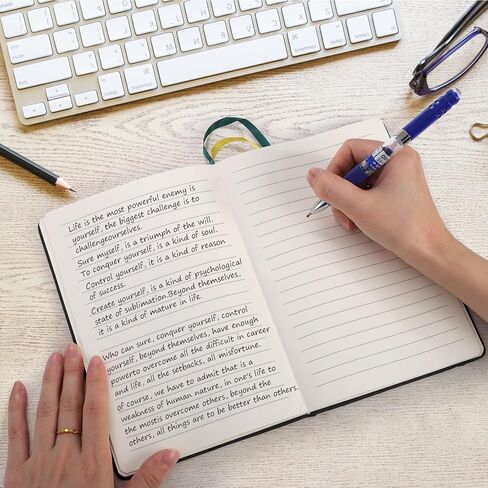 Life is the most powerful enemy is
yourself, the biggest challenge is to
challengeourselves.
Sure myself, is a triumph of the will.
To conquer yourself, is a kind of soul.
Control yourself, it is a kind of reason
of success.
Create yourself, is a kind of psychological
state of sublimation.Beyond themselves,
it is a kind of mature in life.
Who can sure, conquer yourself, control
yourself, beyond themselves, have enough
powerto overcome all the difficult in career
and life, all the setbacks, all misfortune.
of course, we have to admit that is a
weakness of human nature, in one's life to
the mostis overcome others, beyond the
others, all things are to be better than others.